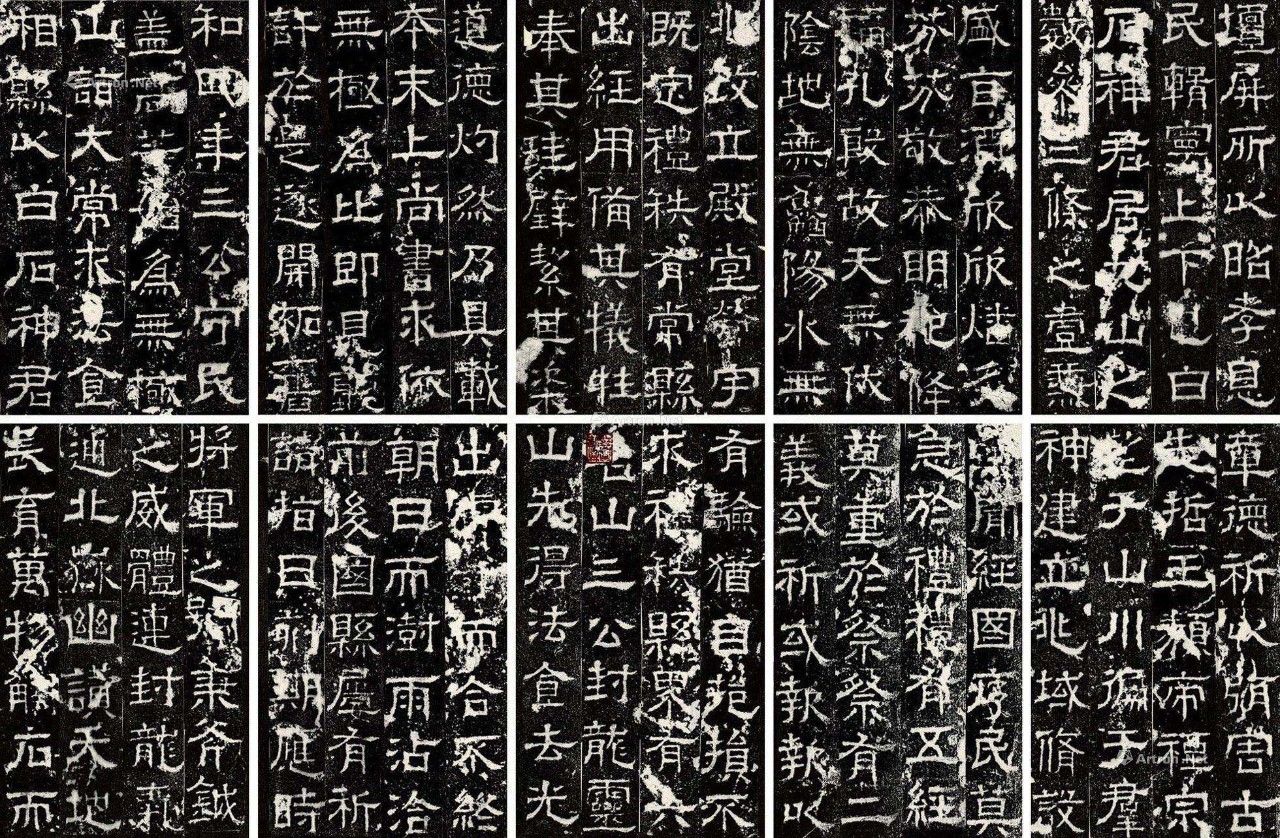 蓋聞經國序民莫
急於禮禮有五經
莫重於祭祭有二
義或祈或報報以
章德祈以弭害古
先哲王類帝禋宗
望于山川徧于羣
神建立兆域脩設
壇屏所以昭孝息
民輯寧上下也白
石神君居九山之
數參三條之壹兼
將軍之號秉斧鉞
之威體連封龍氣
通北嶽幽讃天地
長育萬物觸石而
出膚寸而合不終
朝日而澍雨沾洽
前後國縣屢有祈
請指日刻期應時
有驗猶自挹損不
求禮秩縣界有六
名山三公封龍靈
山先得法食去光
和四年三公守民
蓋高等始為無極
山詣大常求法食
相縣以白石神君
道德灼然乃具載
本末上尚書求依
無極為比即見聽
許於是遂開拓舊
兆改立殿堂營宇
既定禮秩有常縣
出經用備其犧牲
奉其珪璧絜其粢
盛旨酒欣欣燔炙
芬芬敬恭明祀降
福孔殷故天無伏
陰地無鱻陽水無